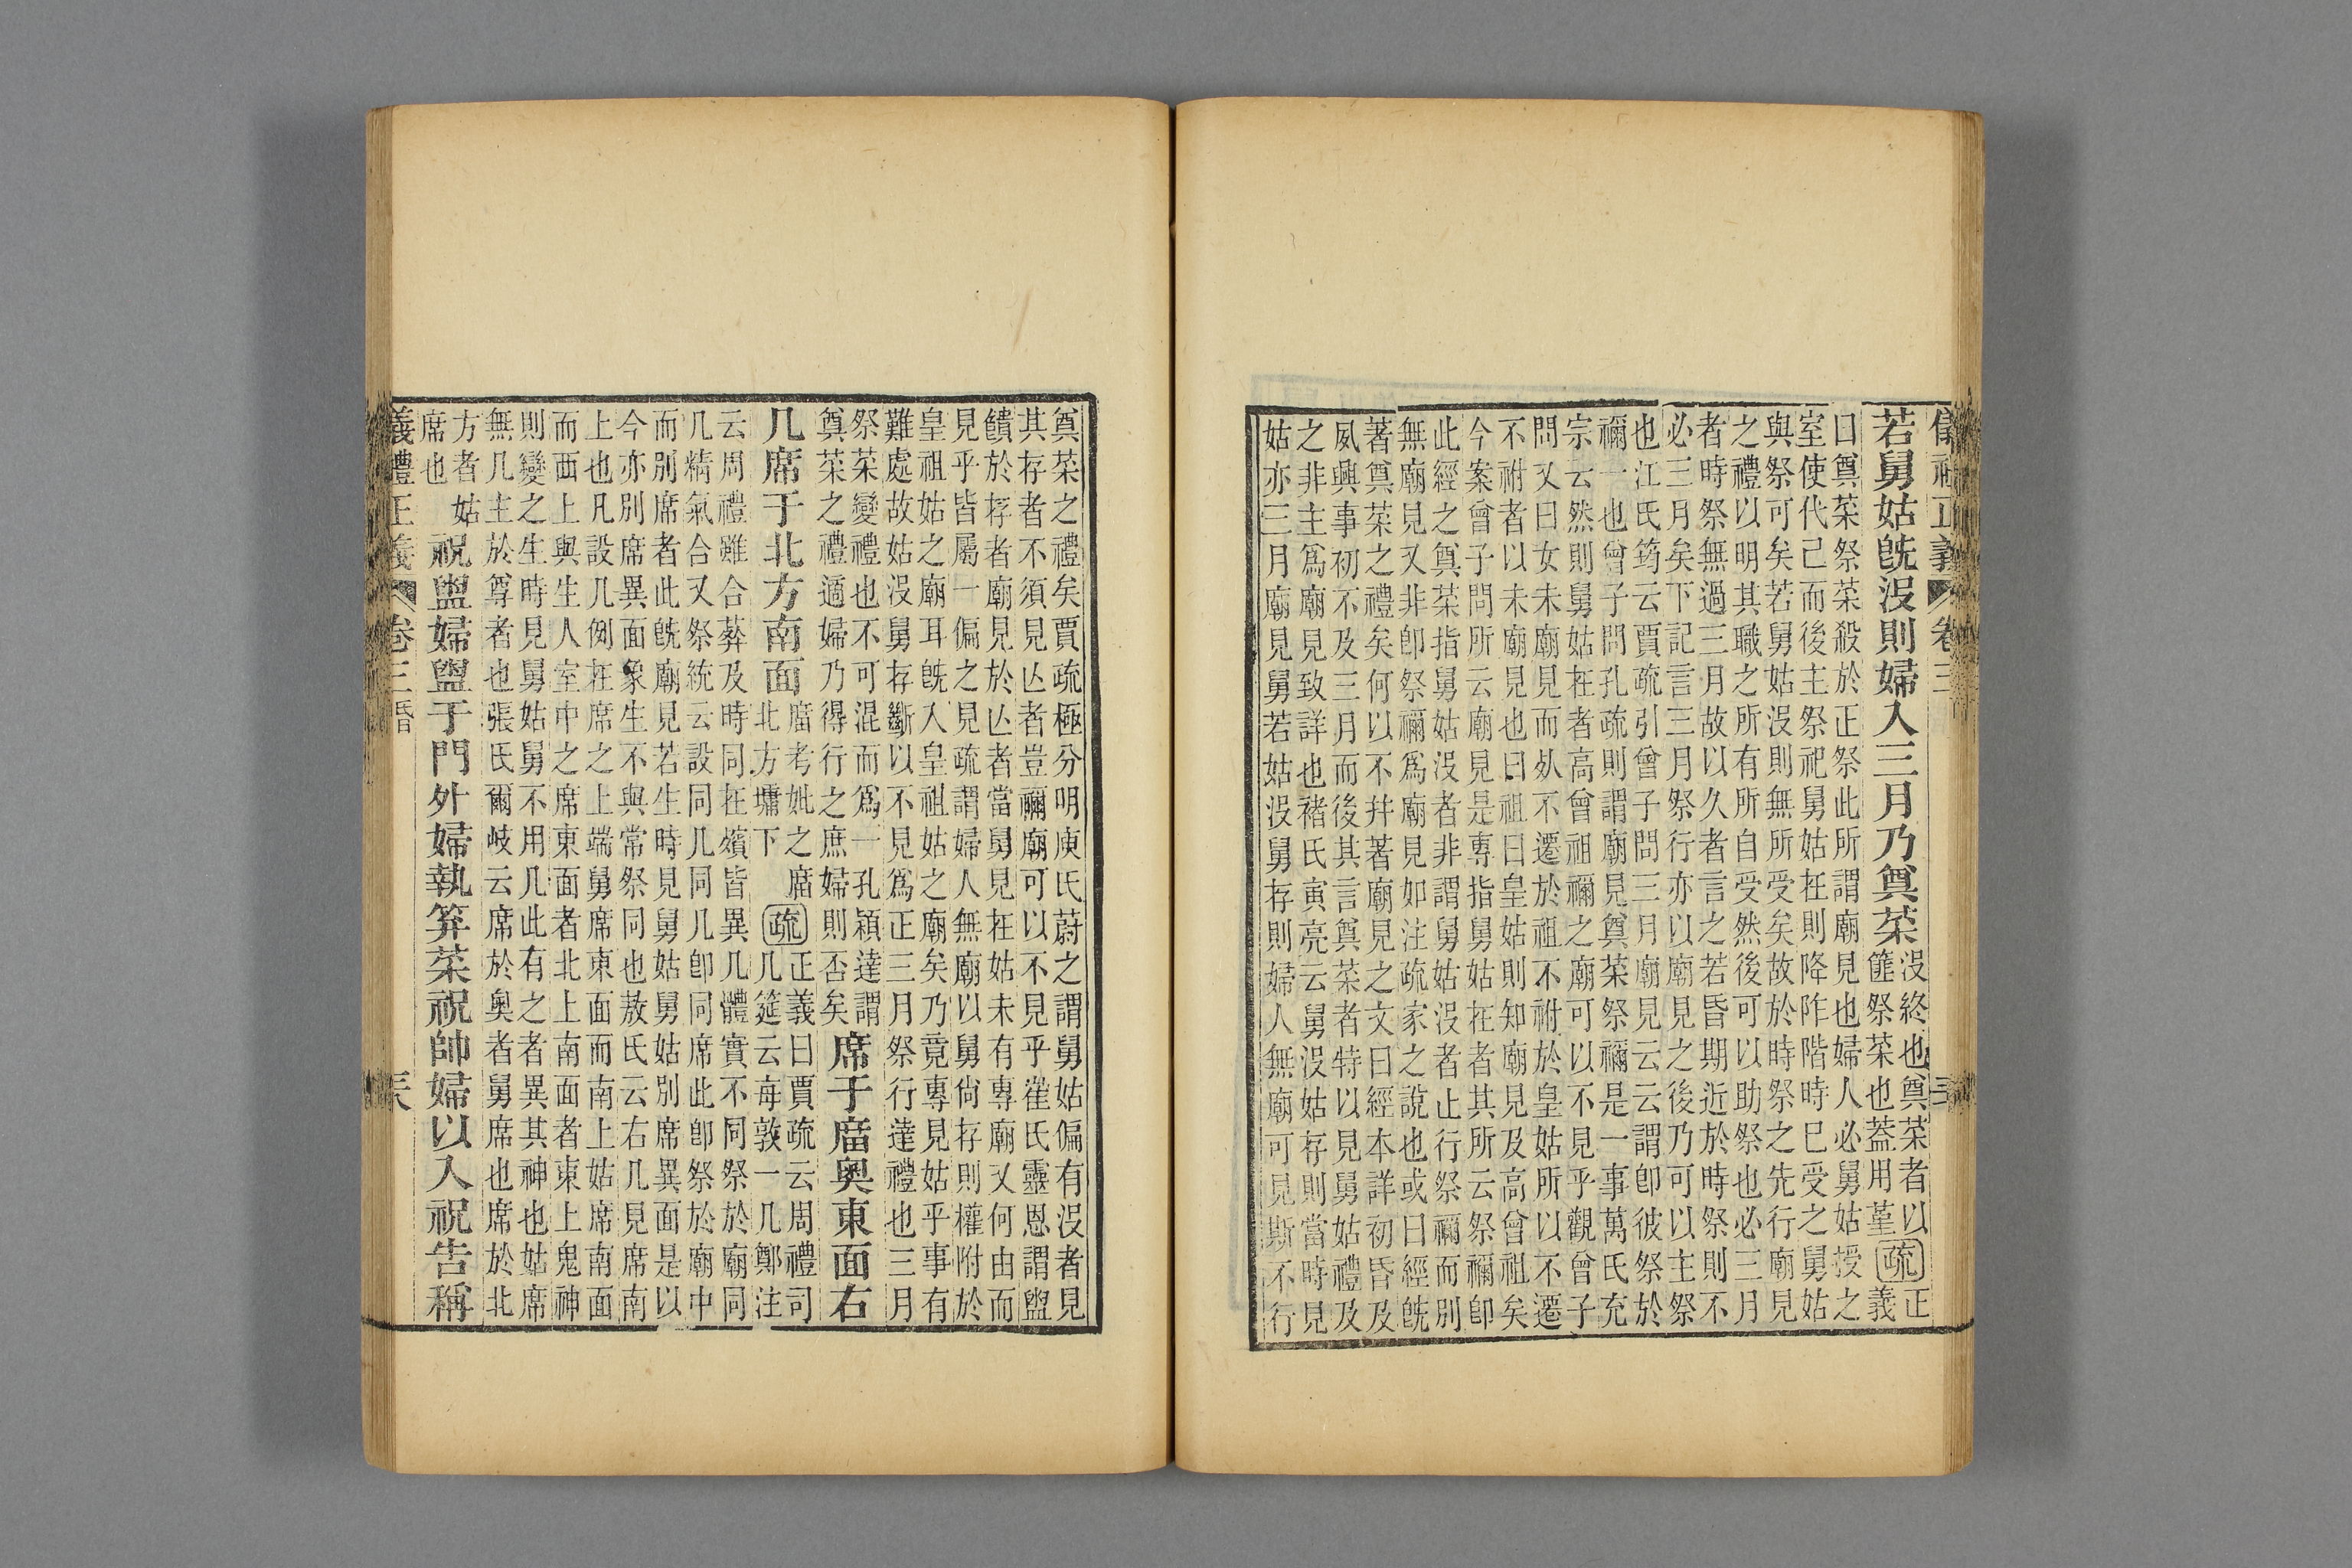 儀禮正義 卷三
若舅姑旣沒則婦入三月乃奠菜沒終也奠菜者以
篚祭菜也葢用堇疏正
義
曰奠菜祭菜殺於正祭此所謂廟見也婦人必舅姑授之
室使代己而後主祭祀舅姑在則降阼階時已受之舅姑
與祭可矣若舅姑沒則無所受矣故於時祭之先行廟見
之禮以明其職之所有所自受然後可以助祭也必三月
者時祭無過三月故以久者言之若昏期近於時祭則不
必三月矣下記言三月祭行亦以廟見之後乃可以主祭
也江氏筠云賈疏引曾子問三月廟見云云謂卽彼祭於
禰一也曾子問孔疏則謂廟見奠菜祭禰是一事萬氏充
宗云然則舅姑在者高曾祖禰之廟可以不見乎觀曾子
問又曰女未廟見而死不遷於祖不祔於皇姑所以不遷
不祔者以未廟見也曰祖曰皇姑則知廟見及高曾祖矣
今案曾子問所云廟見是專指舅姑在者其所云祭禰卽
此經之奠菜指舅姑沒者非謂舅姑沒者止行祭禰而別
無廟見又非卽祭禰爲廟見如注疏家之說也或曰經旣
著奠菜之禮矣何以不幷著廟見之文曰經本詳初昏及
夙興事初不及三月而後其言奠菜者特以見舅姑禮及
之非主爲廟見致詳也褚氏寅亮云舅沒姑存則當時見
姑亦三月廟見舅若姑沒舅存則婦人無廟可見斯不行
奠菜之禮矣賈疏極分明庾氏蔚之謂舅姑偏有沒者見
其存者不須見亾者豈禰廟可以不見乎崔氏靈恩謂盥
饋於存者廟見於亾者當舅見在姑未有專廟又何由而
見乎皆屬一偏之見疏謂婦人無廟以舅尙存則權附於
皇祖姑之廟耳旣入皇祖姑之廟矣乃竟專見姑乎事有
難處故姑沒舅存斷以不見爲正三月祭行達禮也三月
祭菜變禮也不可混而爲一孔穎達謂
奠菜之禮適婦乃得行之庶婦則否矣席于廟奧東面右
几席于北方南面廟考妣之廟
北方墉下疏正義曰賈疏云周禮司
几筵云每敦一几鄭注
云周禮雖合葬及時同在殯皆異几體實不同祭於廟同
几精氣合又祭統云設同几同几卽同席此卽祭於廟中
而別席者此旣廟見若生時見舅姑舅姑別席異面是以
今亦別席異面象生不與常祭同也敖氏云右几見席南
上也凡設几例在席之上端舅席東面而南上姑席南面
而西上與生人室中之席東面者北上南面者東上鬼神
則變之生時見舅姑舅不用几此有之者異其神也姑席
無几主於尊者也張氏爾岐云席於奧者舅席也席於北
方者姑
席也祝盥婦盥于門外婦執笲菜祝帥婦以入祝告稱
義禮正義 卷三 昏